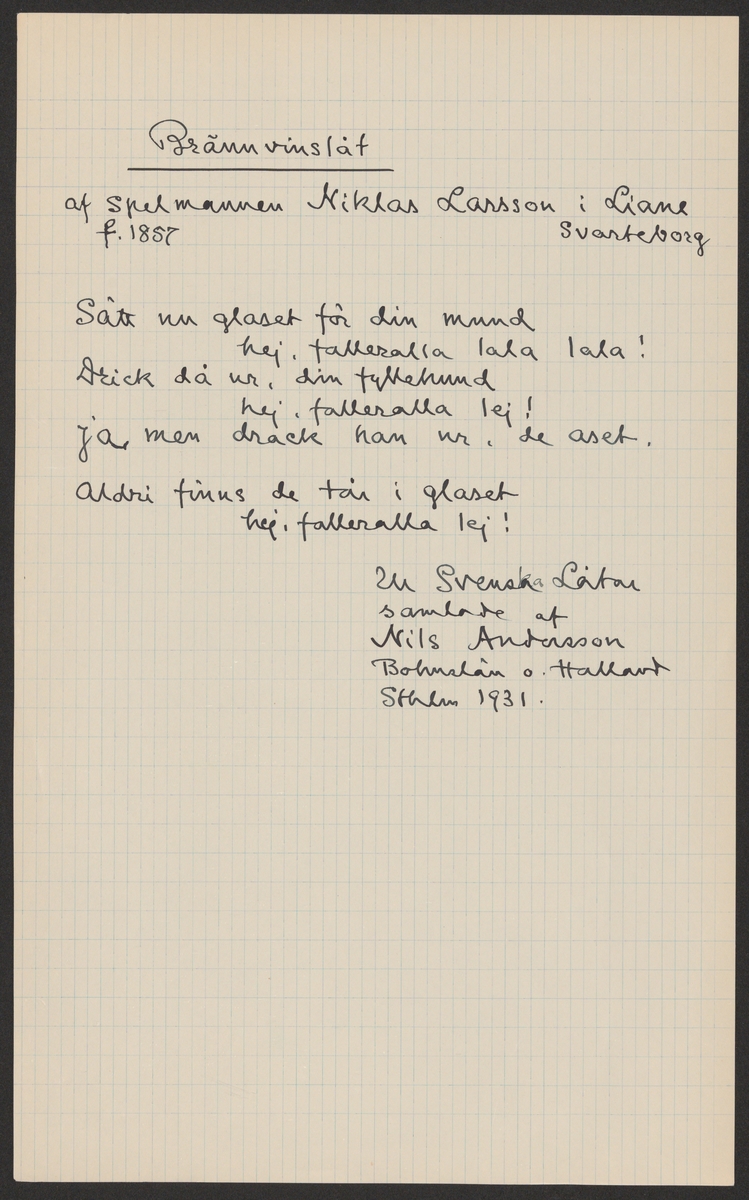 Brännvinslåt
af spelmannen Niklas Larsson i Liane
f. 1857 Svarteborg
Sätt nu glaset för din mund
hej, falleralla lala lala!
Drick då ur, din fyllehund
hej, falleralla lej!
ja, men drack han ur, de aset.
Aldri finns de tår i glaset
hej, falleralla lej!
Ur Svenska Låtar
samlade af
Nils Andersson
Bohuslän o. Halland
Sthlm 1931.